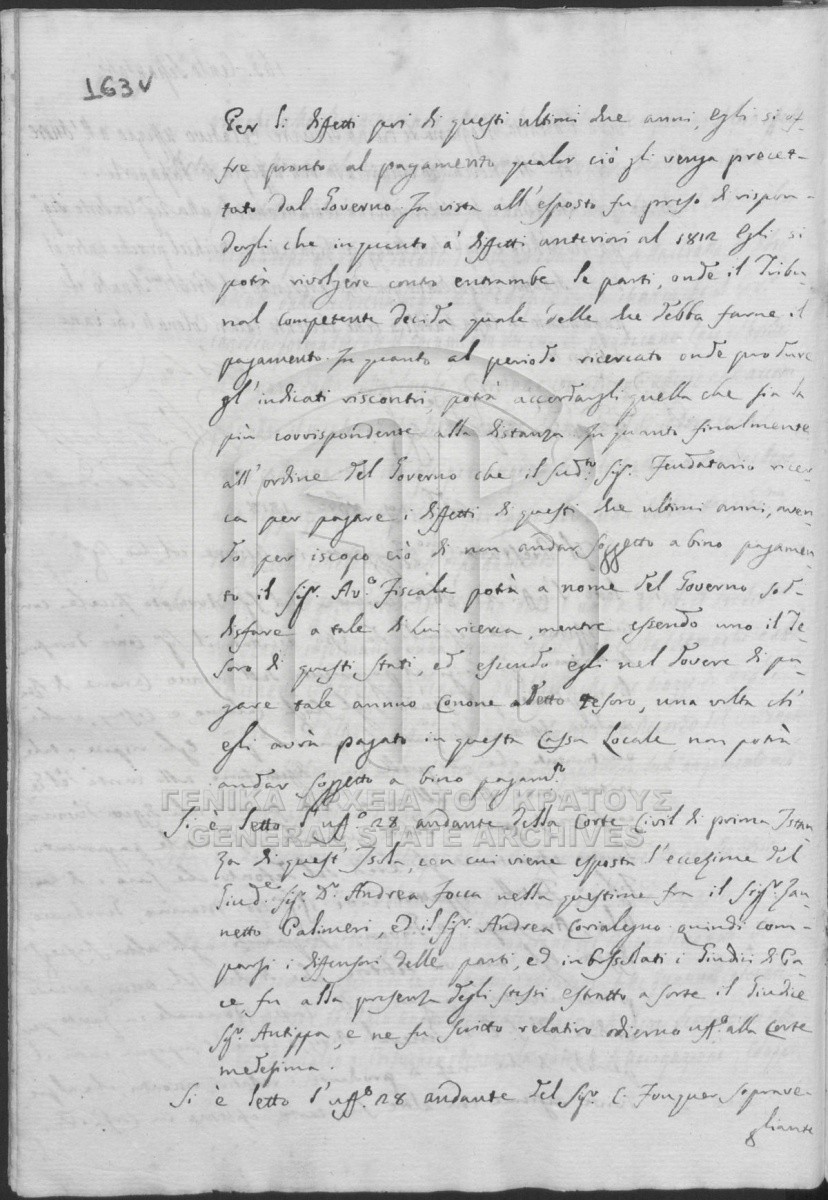 163v
Per li diffetti poi di questi ultimi due anni, egli si of-
fre pronto al pagamento qualor ciò gli venga precet-
tato dal Governo. In vista all'esposto fu preso di rispon-
dergli che inquanto a' diffetti anteriori al 1812 Egli si
potrà rivolgere contro entrambe le parti, onde il Tribu-
nal competente decida quale delle due debba farne il
pagamento. In quanto al periodo ricercato onde produrre
gl'indicati riscontri, potrà accordargli quella che sia la
più corrispondente alla distanza. In quanto finalmente
all'ordine del Governo che il sud.to Sig.r Feudatario ricer-
ca per pagare i diffetti di questi due ultimi anni, aven-
do per iscopo ciò di non andar soggetto a bino pagamen-
to il Sig.r Av.o Fiscale potrà a nome del Governo sod-
disfare a tale di Lui ricerca, mentre essendo uno il Te-
soro di questi stati, ed essendo egli nel dovere di pa-
gare tale annuo Canone a detto Tesoro, una volta ch'
egli avrà pagato in questa Cassa Locale non potrà
andar soggetto a bino pagam.to
ΓΕΝΙΚΑ ΑΡΧΕΙΑ ΤΟΥ ΚΡΑΤΟΥΣ
Si è letto l'uff.o 28 andante della Corte Civil di prima Istan-
GENERAL STATE ARCHIVES
za di quest'Isola, con cui viene esposta l'eccezione del
Giud.e Sig.r D.r Andrea Focca nella questione fra il Sig.r Zan-
netto Palimeri, ed il Sig.r Andrea Corialegno quindi com-
parsi i diffensori delle parti, ed imbossolati i Giudici di Pa-
ce fu alla presenza degli stessi estratto a sorte il Giudice
Sig.r Antippa, e ne fu scritto relativo odierno uff.o alla Corte
medesima.
Si è letto l'uff.o 28 andante del Sig.r C. Foresti Soprave-
gliante